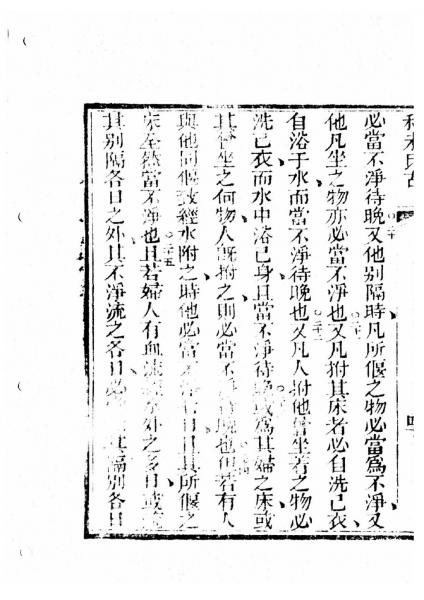 必當不淨待晚又他別隔時凡所偃之物必當為不淨又
他凡坐之物亦必當不淨也又凡拊其床者必自洗己衣
自浴于水而當不淨待晚也又凡人拊他曾坐着之物必
洗己衣而水中浴己身且當不淨待晚或為其婦之床或
其曾坐之何物人既拊之則必當不淨待晚也但若有人
與他同偃致經水附之時他必當不淨七日且其所偃之
床全然當不淨也且若婦人有血流經水外之多日或流
其別隔各日之外其不淨流之各日必其隔別各日